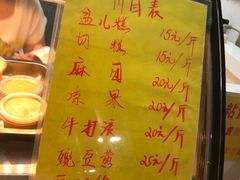 价目表
盆儿糕 15元/斤
切糕 15元/斤
麻团 20元/斤
凉果 20元/斤
牛打滚 20元/斤
豌豆黄 25元/斤